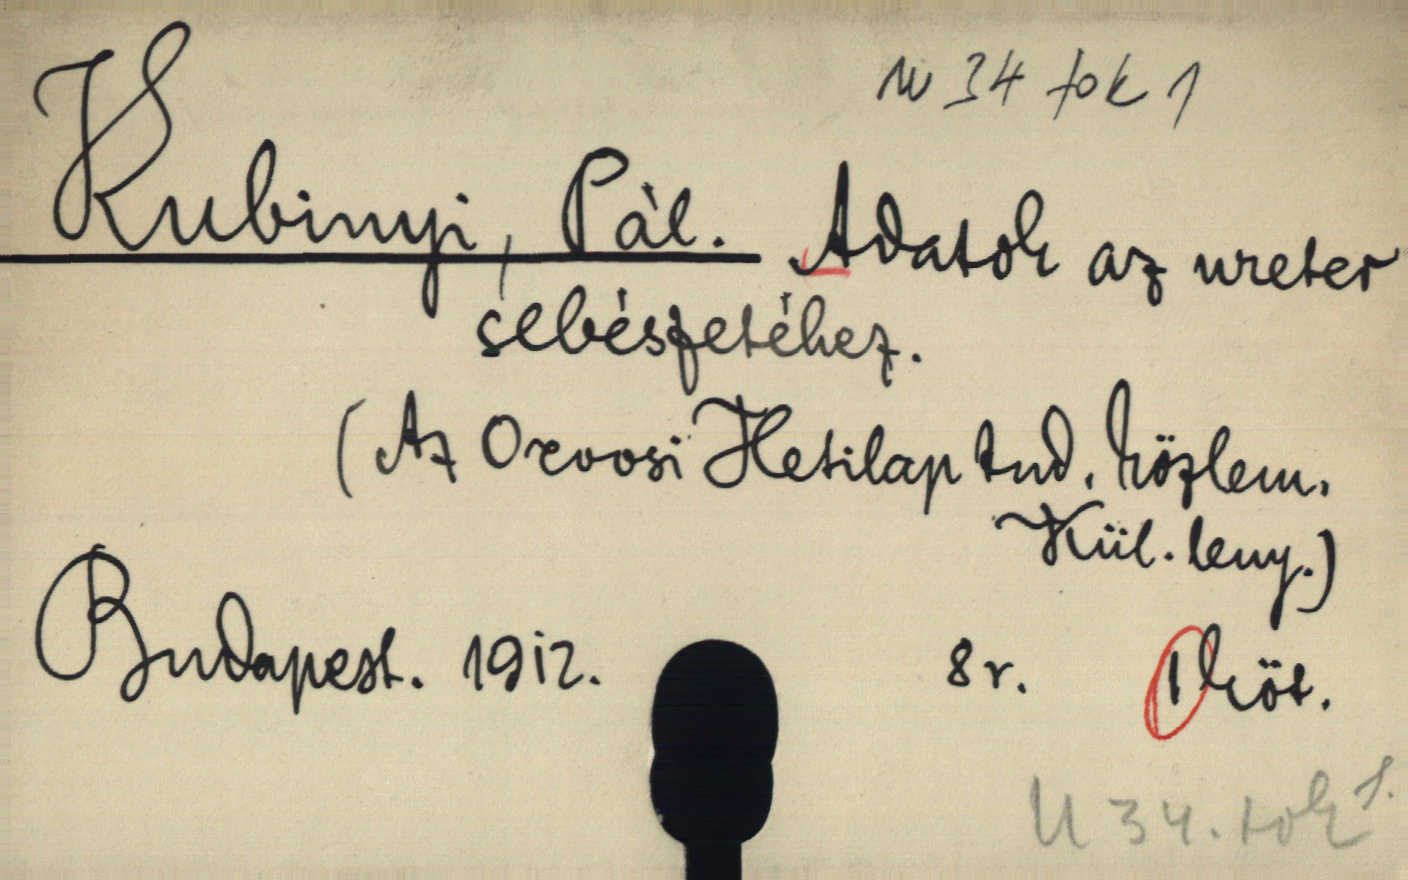 U 34 tok 1
Kubinyi, Pál. Adatok az ureter
sebészetéhez.
(Az Orvosi Hetilap tud. közlem.
Kül. leny.)
Budapest. 1912. 8 r. 1 köt.
U 34. tok 1.